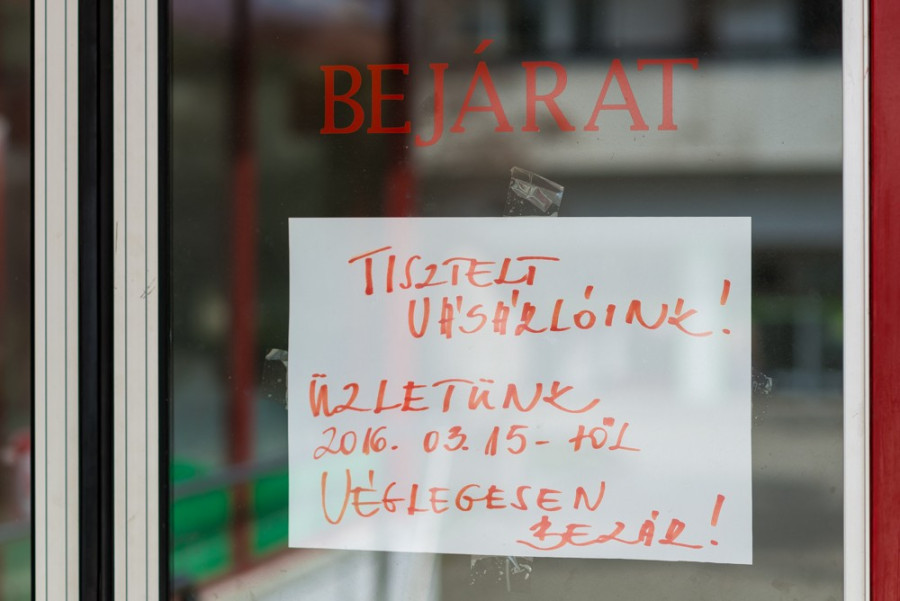 BEJÁRAT
TISZTELT
VÁSÁRLÓINK!
ÜZLETÜNK
2016. 03. 15-TŐL
VÉGLEGESEN
BEZÁR!